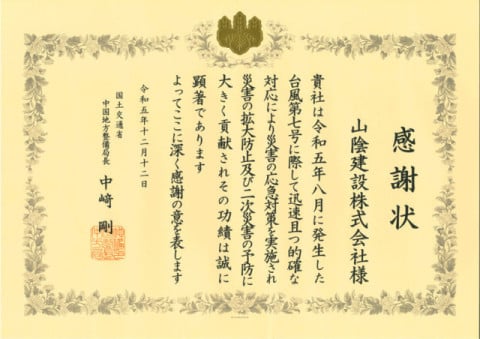 感謝状
山陰建設株式会社様
貴社は令和五年八月に発生した
台風第七号に際して迅速且つ的確な
対応により災害の応急対策を実施され
災害の拡大防止及び二次災害の予防に
大きく貢献されその功績は誠に
顕著であります
よってここに深く感謝の意を表します
令和五年十二月十二日
国土交通省
中国地方整備局長
中﨑 剛